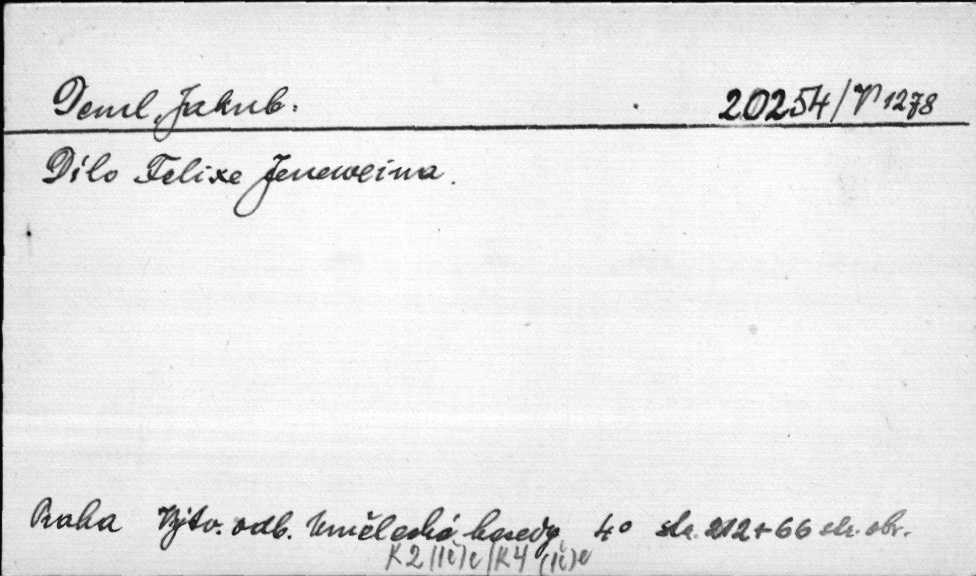 Deml, Jakub: 20254/V 1278
Dílo Felixe Jeneweina.
Praha Výtv. odb. Umělecké besedy 4° str. 212 + 66 str. obr.
K2 (1č)c/K4 (1č)c